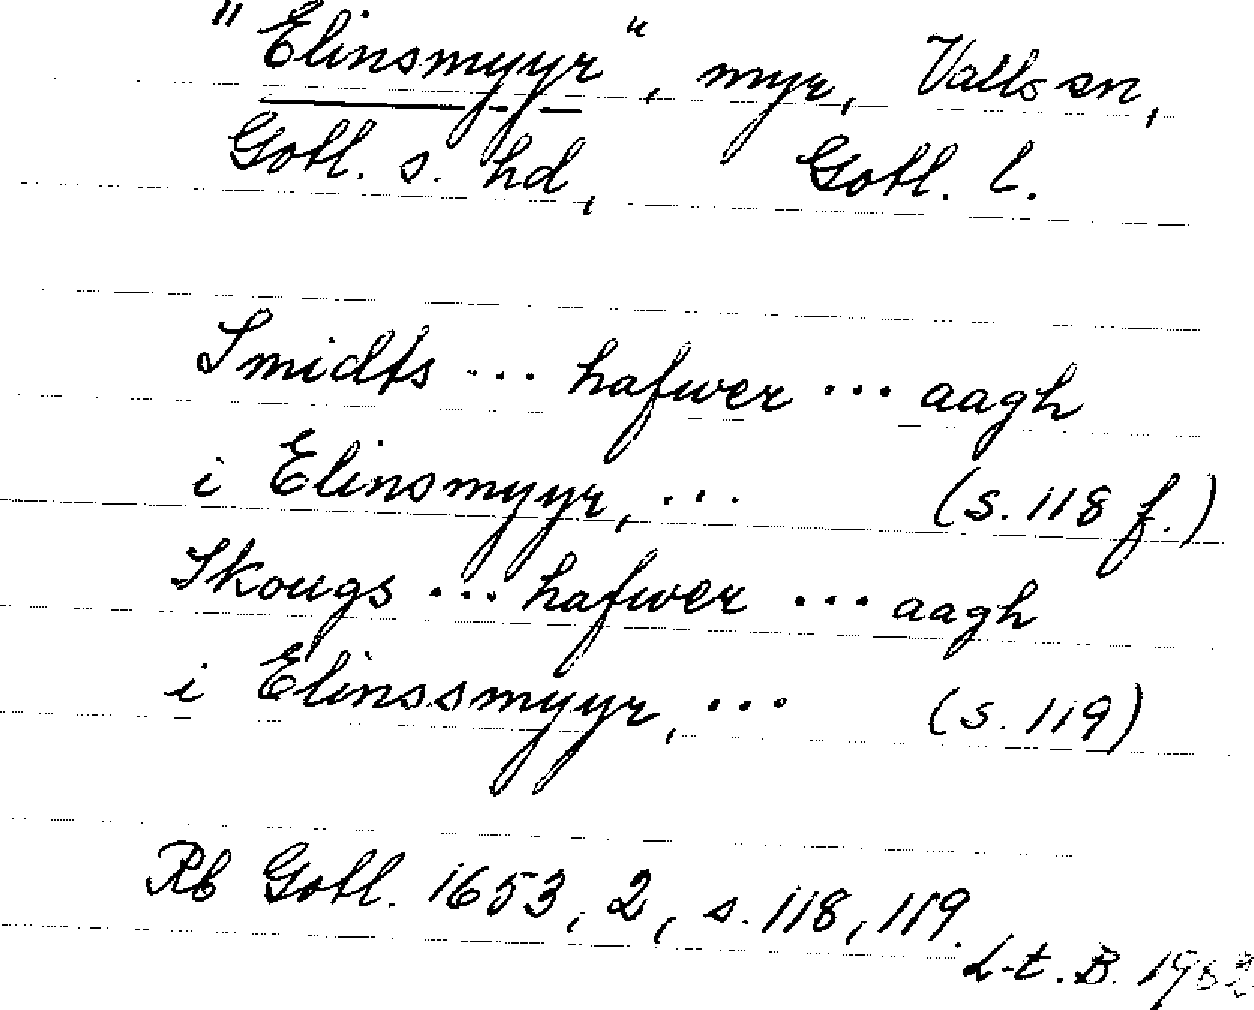 "Elinsmyyr", myr, Valls sn,
Gotl. s. hd, Gotl. l.
Smidts ... hafwer ... aagh
i Elinsmyyr, ... (s. 118 f.)
Skougs ... hafwer ... aagh
i Elinssmyyr, ... (s. 119)
Rb Gotl. 1653, 2, s. 118, 119.
L-t. B. 1962